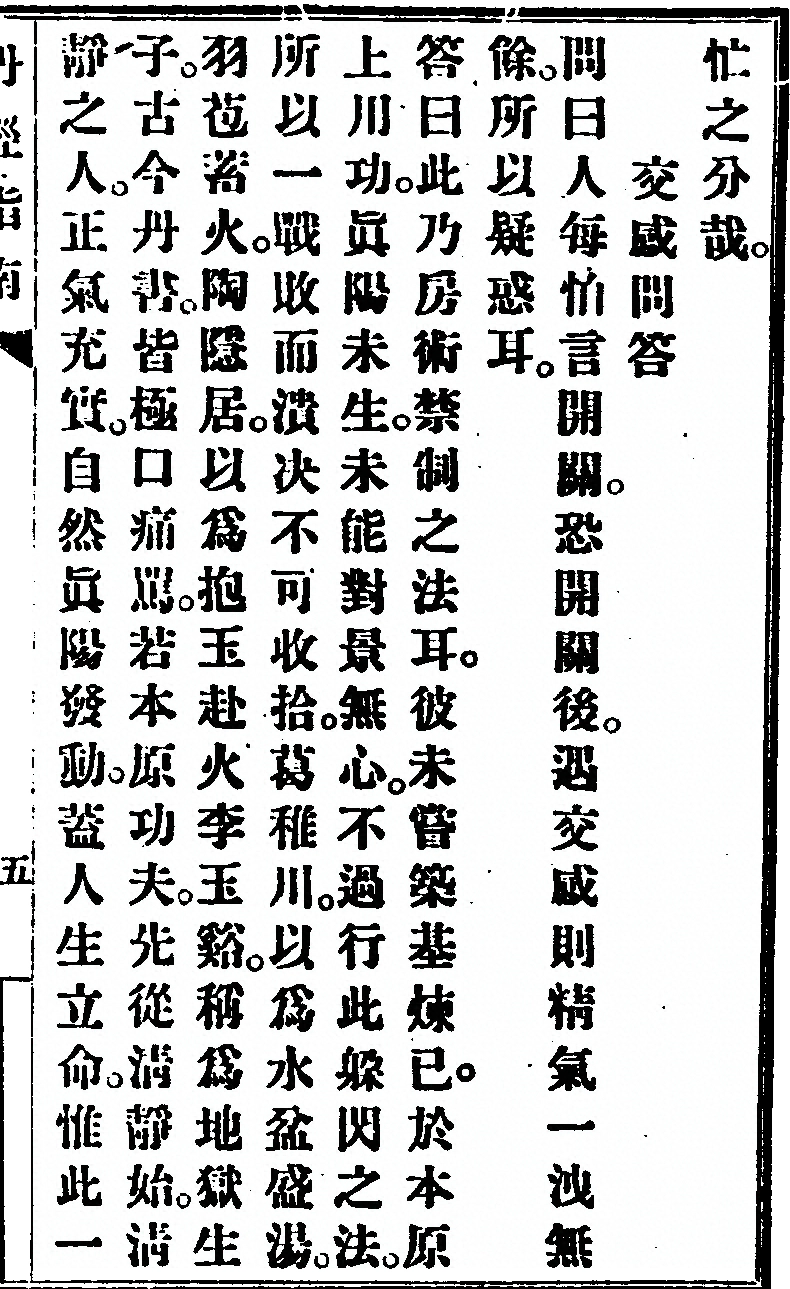 忙之分哉。
交感問答
問曰人每怕言開關。恐開關後。遇交感則精氣一洩無
餘。所以疑惑耳。
答曰此乃房術禁制之法耳。彼未嘗築基煉已。於本原
上用功。眞陽未生。未能對景無心。不過行此躲閃之法。
所以一戰敗而潰决不可收拾。葛稚川。以爲水盆盛湯。
羽苞蓄火。陶隱居。以爲抱玉赴火李玉谿。稱爲地獄生
子。古今丹書。皆極口痛罵。若本原功夫。先從淸靜始。淸
靜之人。正氣充實。自然眞陽發動。蓋人生立命。惟此一
丹經指南
五